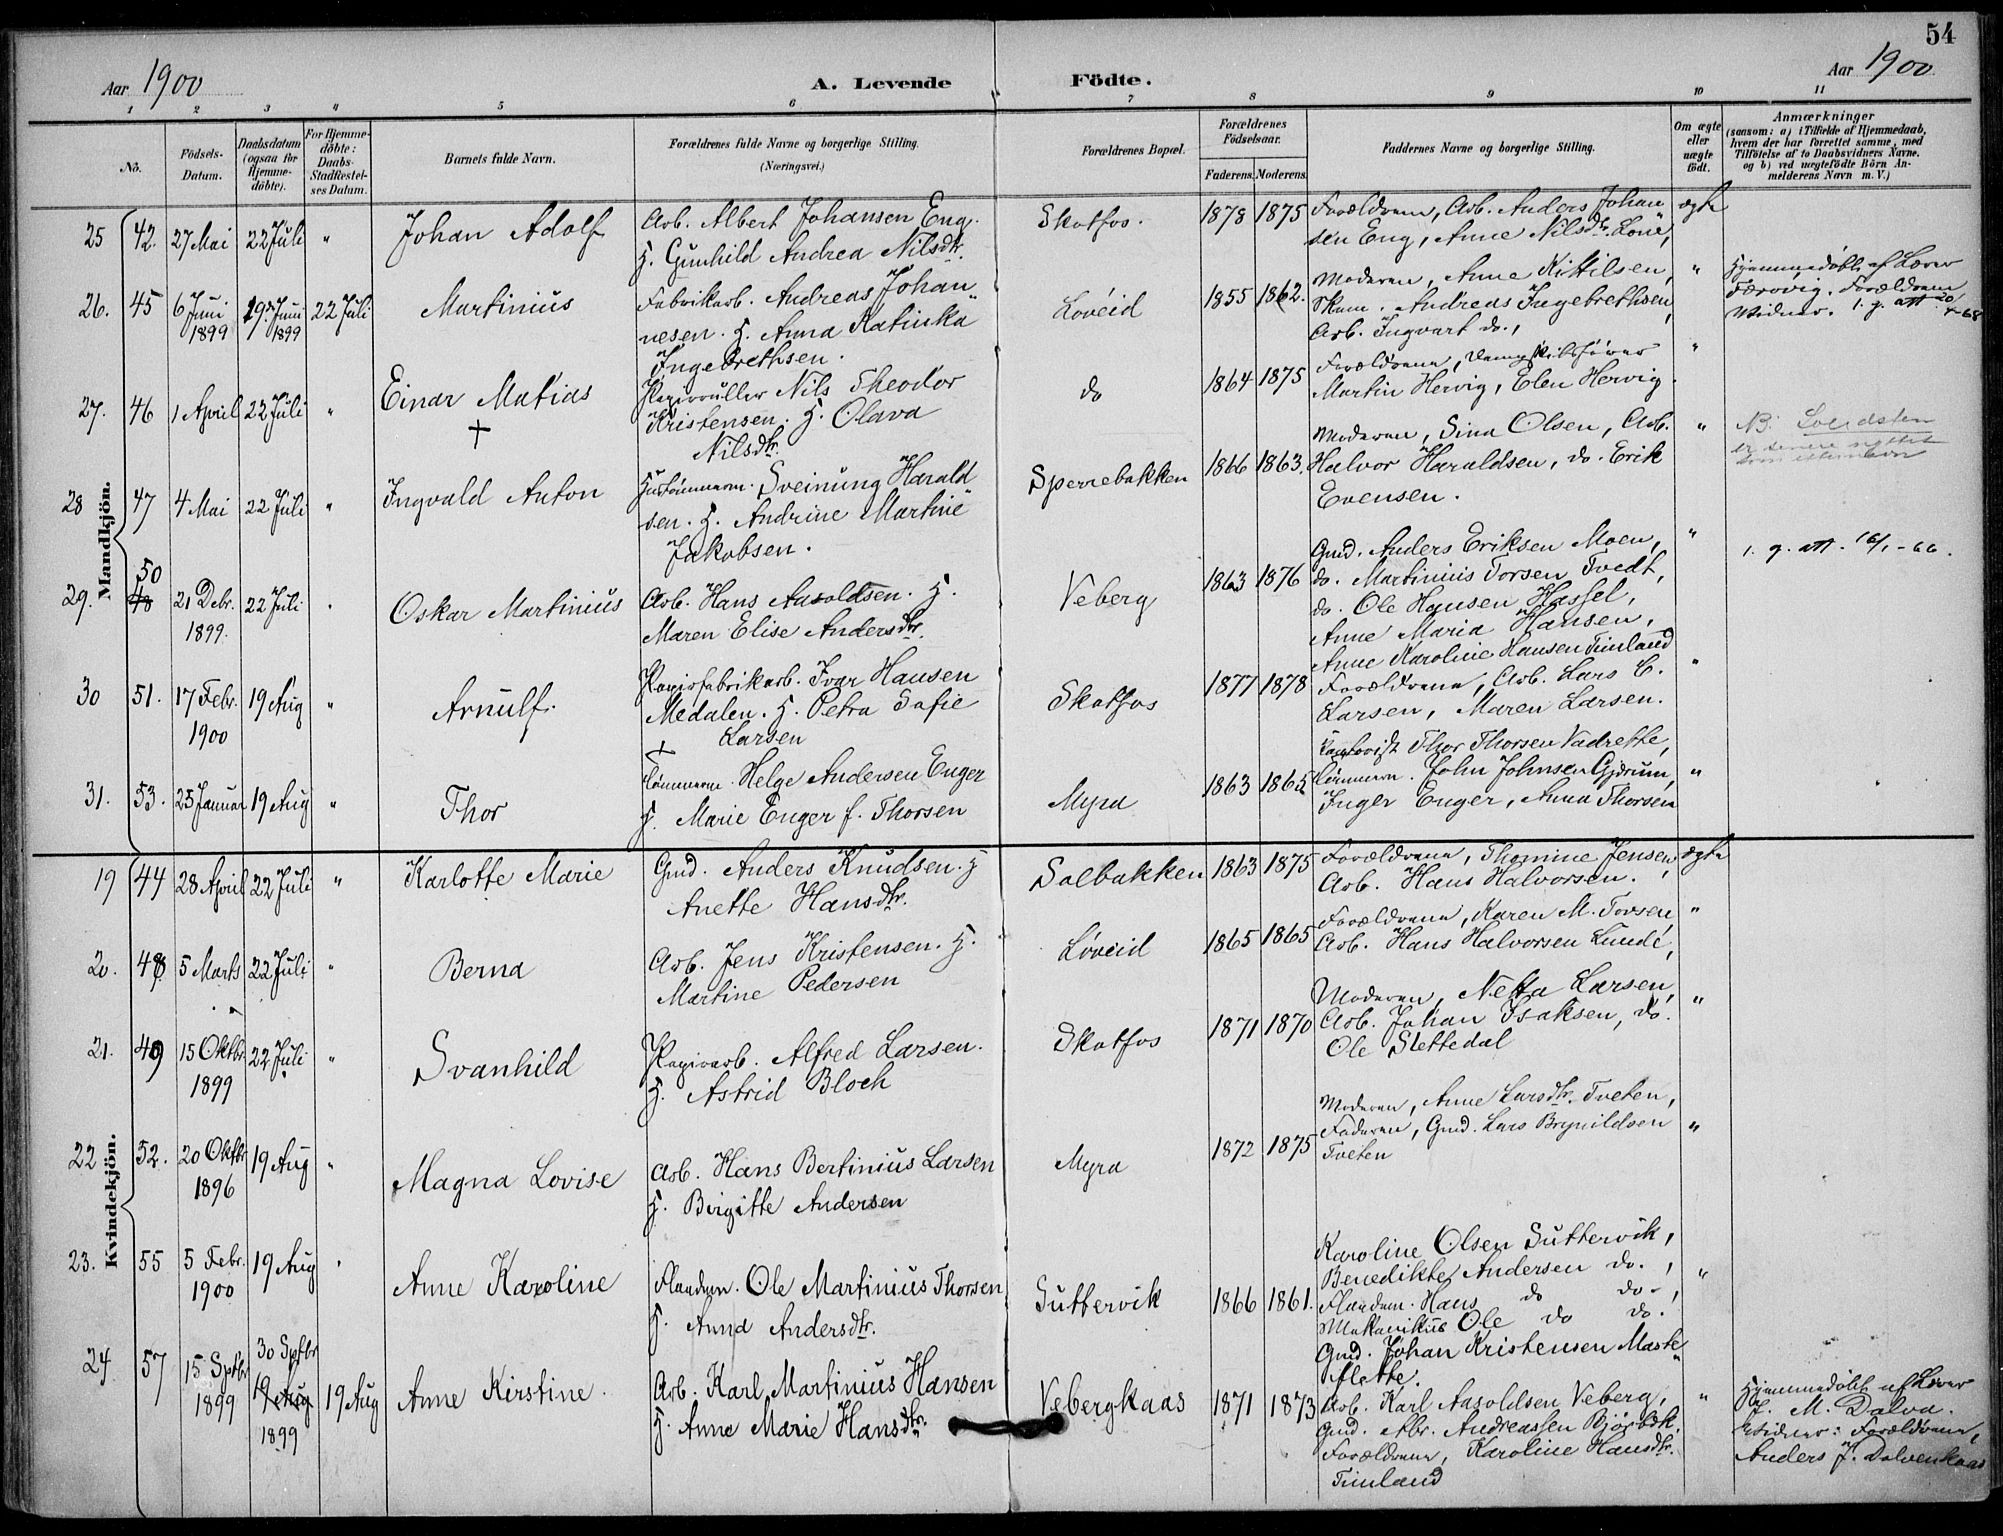 54
Aar 1900
A. Levende Födte.
Aar 1900
1 2 3 4 5 6 7 8 9 10 11
No.
Födsels-Datum.
Daabsdatum (ogsaa for Hjemmedöbte).
For Hjemmedöbte: Daabs-Stadfæstelses Datum.
Barnets fulde Navn.
Forældrenes fulde Navne og borgerlige Stilling.
(Næringsvei.)
Forældrenes Bopæl.
Forældrenes Födselsaar.
Faderens. Moderens.
Faddernes Navne og borgerlige Stilling.
Om ægte eller uægte födt.
Anmærkninger
(saasom: a) i Tilfælde af Hjemmedaab, hvem der har forrettet samme, med Tilföielse af to Daabsvidners Navne, og b) ved uægtefödte Börn Anmelderens Navn m. V.)
Mandkjön.
25 42. 27 Mai 22 Juli " Johan Adolf
Arb. Albert Johansen Eng.
H. Gunhild Andrea Nilsdtr.
Skotfos. 1878 1875
Forældrene, Arb. Anders Johan
sen Eng, Anne Nilsdtr. Lone,
ægte
26. 45 6 Juni 1899 19 Juni 1899 22 Juli Martinius
Fabrikarb. Andreas Johan
nesen. H. Anna Katinka
Ingebrethsen.
Løveid 1855 1862.
Moderen, Anne Kittilsen,
Skom. Andreas Ingebrethsen,
Arb. Ingvart do.,
"
Hjemmedøbt af Lærer
Færovig. Forældrene
Vidner. 1. g. att 20/4-68
27. 46 1 April 22 Juli " Einar Matias
+
Nils Theodor
Kristensen. H. Olava
Nilsdtr.
do 1864 1875
Forældrene,
Martin Hervig, Elen Hervig.
"
NB.
28 47 4 Mai 22 Juli " Ingvald Anton
Hustømmerm. Sveinung Harald
sen. H. Andrine Martine
Jakobsen.
Sperrebakken 1866 1863.
Moderen, Sina Olsen, Arb.
Halvor Haraldsen, do. Erik
Evensen.
"
29. 50 48 21 Debr. 1899. 22 Juli " Oskar Martinius
Arb. Hans Aasoldsen. H.
Maren Elise Andersdtr.
Veberg 1863 1876
Gmd. Anders Eriksen Moen,
do. Martinius Torsen Tvedt,
do. Ole Hansen Hassel,
Anne Maria Hansen,
Anne Karoline Hansen Timland
"
1. g. att. 16/1-66.
30 51. 17 Febr. 1900 19 Aug " Arnulf.
Papirfabrikarb. Ivar Hansen
Medalen. H. Petra Sofie
+ Larsen
Skotfos 1877 1878
Forældrene, Arb. Lars C.
Larsen, Maren Larsen.
"
31. 53. 25 Januar 19 Aug " Thor
Tømmerm. Helge Andersen Enger
H. Marie Enger f. Thorsen
Myra 1863 1865
Thor Thorsen Vadrette,
Tømmerm. John Johnsen Gjerum,
Inger Enger, Anna Thorsen
"
Kvindekjön.
19 44 28 April 22 Juli " Karlotte Marie
Gmd. Anders Knudsen. H
Anette Hansdtr.
Solbakken 1863 1875
Forældrene, Thomine Jensen,
Arb. Hans Halvorsen.
ægte
20. 48 5 Marts 22 Juli " Berna
Arb. Jens Kristensen. H.
Martine Pedersen
Løveid 1865 1865
Forældrene, Karen M. Torsen,
Arb. Hans Halvorsen Lunde,
"
21. 49 15 Oktbr. 1899 22 Juli " Svanhild
Papirarb. Alfred Larsen.
H. Astrid Bloch
Skotfos 1871 1870
Moderen, Netta Larsen,
Arb. Johan Isaksen, do.
Ole Slettedal
"
22 52. 20 Oktbr 1896 19 Aug " Magna Lovise
Arb. Hans Bertinius Larsen
H. Birgitte Andersen
Myra 1872 1875
Moderen, Anne Larsdtr. Tveten,
Faderen, Gmd. Lars Brynildsen
Tveten
"
23. 55 5 Febr. 1900 19 Aug " Anne Karoline
Flaadem. Ole Martinius Thorsen
H. Anna Andersdtr.
Suttervik 1866 1861.
Karoline Olsen Suttervik,
Benedikte Andersen do.,
Flaadem. Hans do do.,
Mekanikus Ole do do.
"
24 57 15 Sptbr 1899 30 Sptbr 19 Aug 1899 19 Aug Anne Kirstine.
Arb. Karl Martinius Hansen
H. Anne Marie Hansdtr.
Vebergkaas 1871 1873
Gmd. Johan Kristensen Marke
flette.
Arb. Karl Aasoldsen Veberg,
Gmd. Abr. Andreassen Bjørbæk.
Forældrene, Karoline Hansdtr.
Timland
"
Hjemmedøbt af Lærer
J. M. Dalva.
Vidner: Forældrene,
Anders J. Dolvenkaas